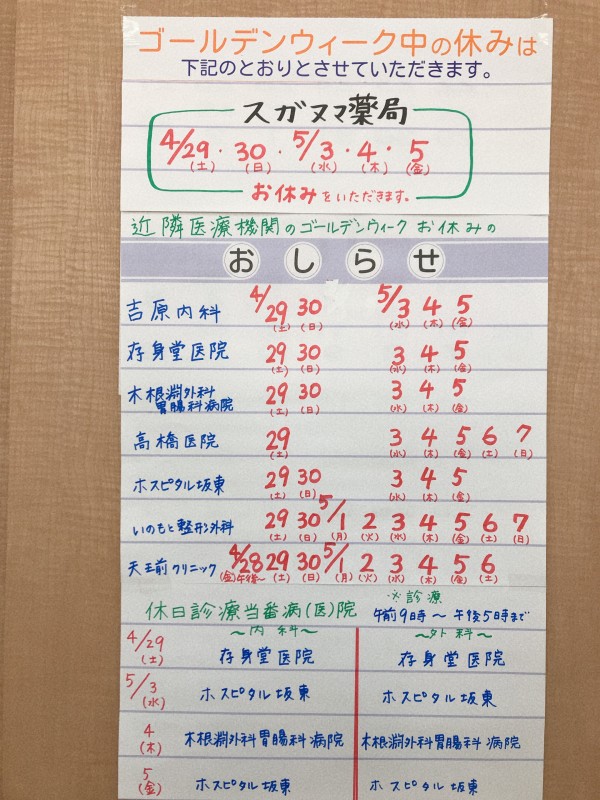 ゴールデンウィーク中の休みは
下記のとおりとさせていただきます。
スガヌマ薬局
4/29(土)・30(日)・5/3(水)・4(木)・5(金)
お休みをいただきます。
近隣医療機関のゴールデンウィークお休みの
おしらせ
吉原内科 4/29(土) 30(日) 5/3(水) 4(木) 5(金)
存身堂医院 29(土) 30(日) 3(水) 4(木) 5(金)
木根淵外科胃腸科病院 29(土) 30(日) 3(水) 4(木) 5(金)
高橋医院 29(土) 3(水) 4(木) 5(金) 6(土) 7(日)
ホスピタル坂東 29(土) 30(日) 3(水) 4(木) 5(金)
いのもと整形外科 29(土) 30(日) 5/1(月) 2(火) 3(水) 4(木) 5(金) 6(土) 7(日)
天王前クリニック 4/28(金)午後〜 29(土) 30(日) 5/1(月) 2(火) 3(水) 4(木) 5(金) 6(土)
休日診療当番病(医)院 ※診療 午前9時〜午後5時まで
〜内科〜 〜外科〜
4/29(土) 存身堂医院 存身堂医院
5/3(水) ホスピタル坂東 ホスピタル坂東
4(木) 木根淵外科胃腸科病院 木根淵外科胃腸科病院
5(金) ホスピタル坂東 ホスピタル坂東